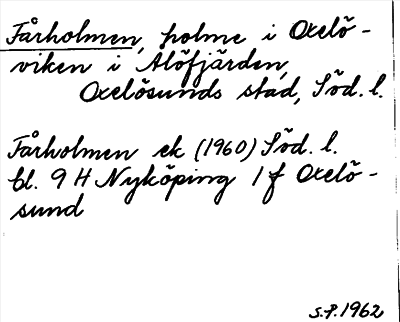 Fårholmen, holme i Oxelö-
viken i Alöfjärden,
Oxelösunds stad, Söd. l.
Fårholmen ek (1960) Söd. l.
bl. 9 H Nyköping 1 f Oxelö-
sund
S.P. 1962